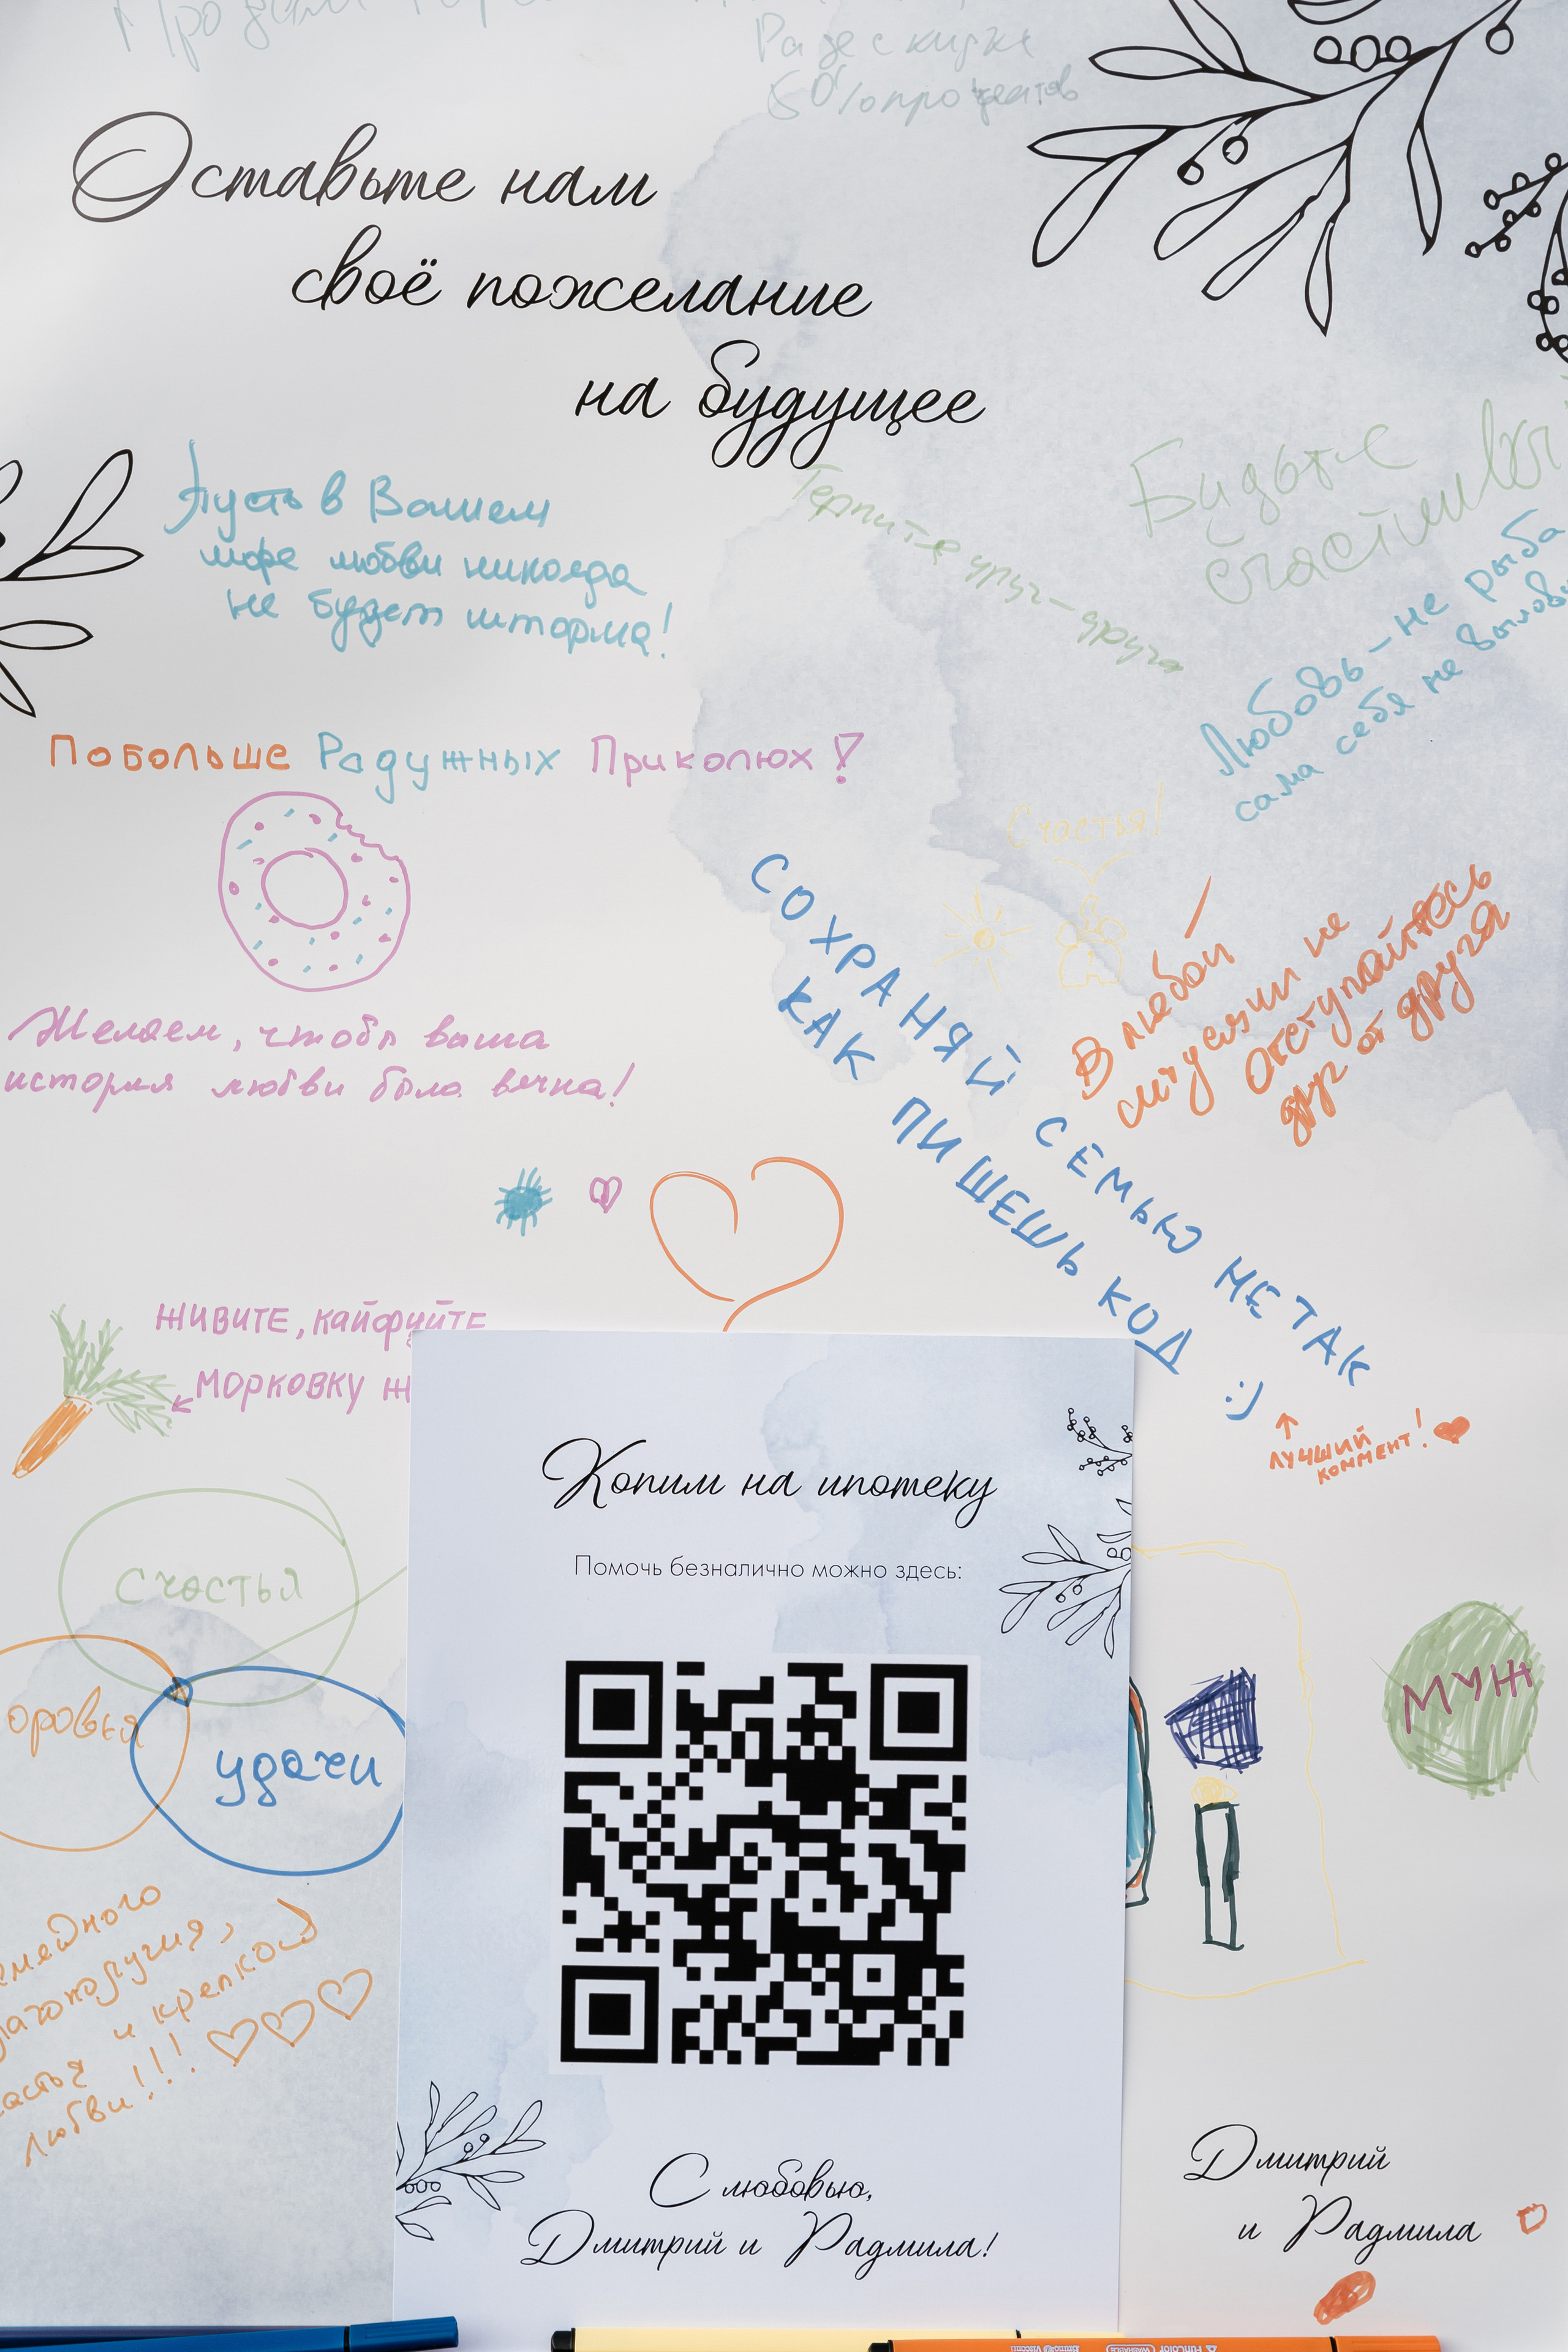 Раде скидка
50% процентов
Оставьте нам
своё пожелание
на будущее
Пусть в Вашем
море любви никогда
не будет шторма!
Терпите друг-друга
Будьте
счастливы
Любовь - не рыба
сама себя не
Побольше Радужных Приколюх!
Счастья!
Желаем, чтобы ваша
история любви была вечна!
СОХРАНЯЙ СЕМЬЮ НЕ ТАК
КАК ПИШЕШЬ КОД :)
В любой
ситуации не
отступайтесь
друг от друга
ЛУЧШИЙ
КОММЕНТ!
ЖИВИТЕ, КАЙФУЙТЕ
МОРКОВКУ Ж
Счастья
оровья
удачи
МУЖ
емейного
лагополучия,
астья и крепкой
любви!!!
Копим на ипотеку
Помочь безналично можно здесь:
С любовью,
Дмитрий и Радмила!
Дмитрий
и Радмила